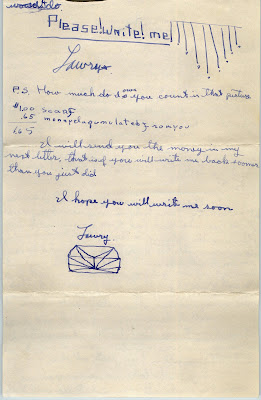 Please! write! me!
Lawry
P.S. How much do does you count in that picture
$1.00 scarf
.65
1.65
I will send you the money in my
next letter, that is if you will write me back sooner
than you just did
I hope you will write me soon
Lawry